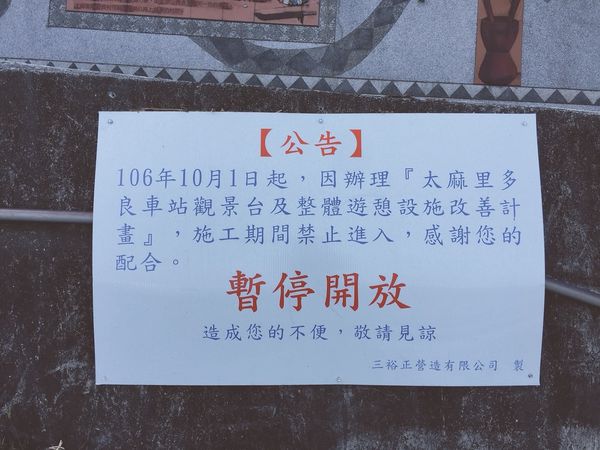 【公告】
106年10月1日起，因辦理『太麻里多
良車站觀景台及整體遊憩設施改善計
畫』，施工期間禁止進入，感謝您的
配合。
暫停開放
造成您的不便，敬請見諒
三裕正營造有限公司 製